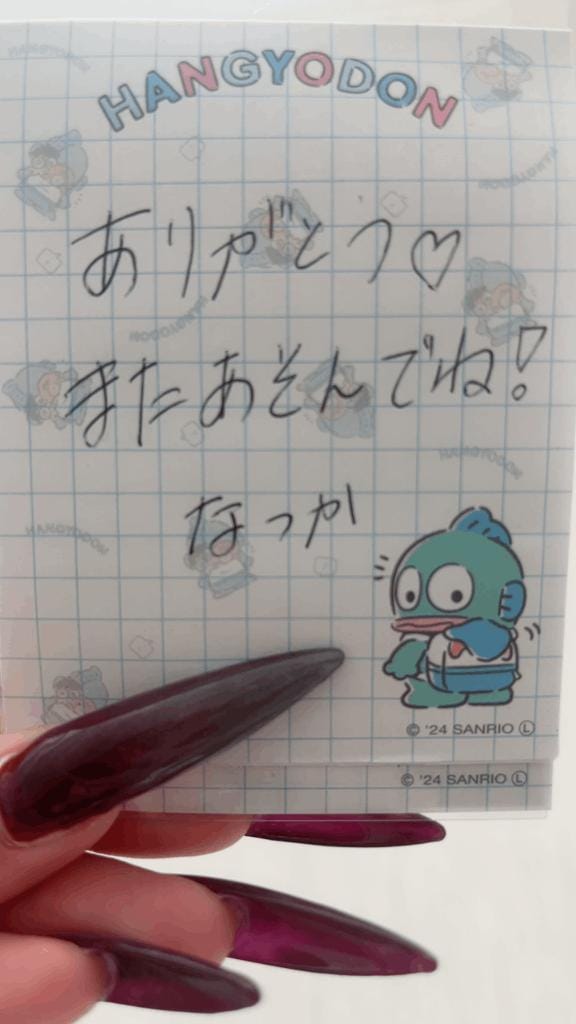 HANGYODON
ありがとう♡
またあそんでね!
なっか
© '24 SANRIO Ⓛ
© '24 SANRIO Ⓛ